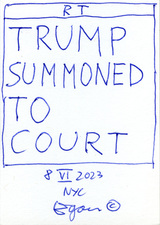 RT
TRUMP
SUMMONED
TO
COURT
8 VI 2023
NYC
©